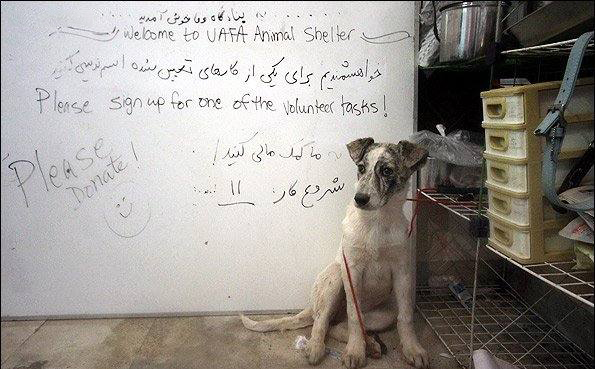 به پناهگاه وفا خوش آمدید
Welcome to VAFA Animal Shelter
خواهشمندیم برای یکی از کارهای تعیین شده اسم نویسی کنید
Please sign up for one of the volunteer tasks!
Please Donate!
به ما کمک مالی کنید!
شروع کار: ۱۱